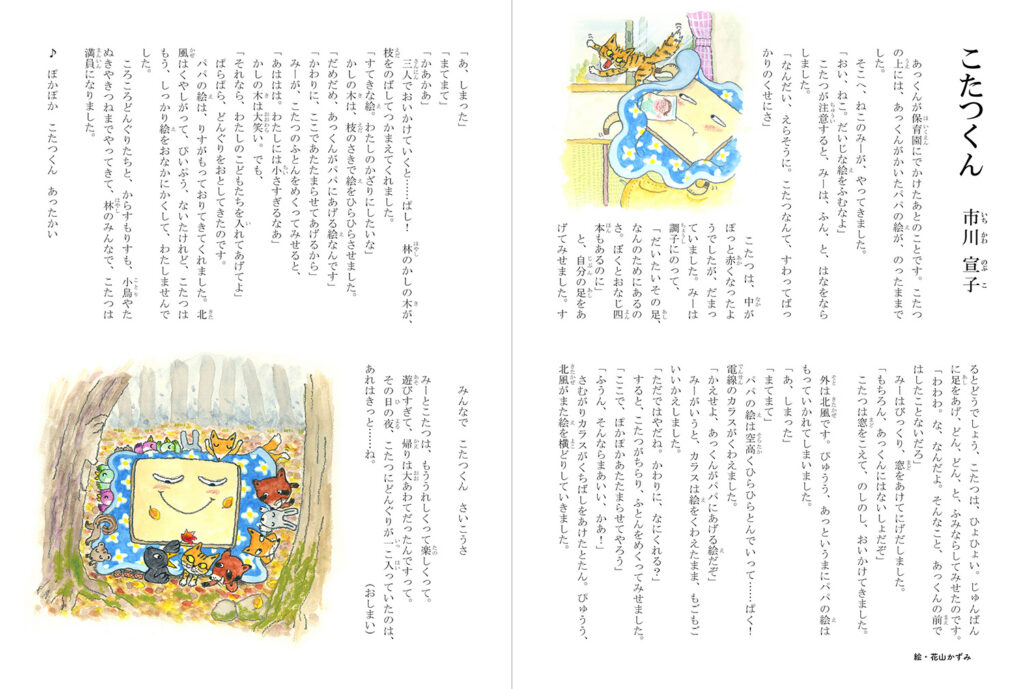 こたつくん
市川 宣子
あっくんが保育園にでかけたあとのことです。こたつ
の上には、あっくんがかいたパパの絵が、のったままで
した。
そこへ、ねこのみーが、やってきました。
「おい、ねこ。だいじな絵をふむなよ」
こたつが注意すると、みーは、ふん、と、はなをなら
しました。
「なんだい、えらそうに。こたつなんて、すわってばっ
かりのくせにさ」
こたつは、中が
ぽっと赤くなったよ
うでしたが、だまっ
ていました。みーは
調子にのって、
「だいたいその足、
なんのためにあるの
さ。ぼくとおなじ四
本もあるのに」
と、自分の足をあ
げてみせました。す
るとどうでしょう、こたつは、ひょひょい。じゅんばん
に足をあげ、どん、どん、と、ふみならしてみせたのです。
「わわわ。な、なんだよ。そんなこと、あっくんの前で
はしたことないだろ」
「もちろん、あっくんにはないしょだぞ」
みーはびっくり、窓をあけてにげだしました。
こたつは窓をこえて、のしのし、おいかけてきました。
外は北風です。ぴゅうう、あっというまにパパの絵は
もっていかれてしまいました。
「あ、しまった」
「まてまて」
パパの絵は空高くひらひらとんでいって……ぱく！
電線のカラスがくわえました。
「かえせよ、あっくんがパパにあげる絵だぞ」
みーがいうと、カラスは絵をくわえたまま、もごもご
いいかえしました。
「ただではやだね。かわりに、なにくれる？」
すると、こたつがちらり、ふとんをめくってみせました。
「ここで、ぽかぽかあたたまらせてやろう」
「ふうん、そんならまあいい、かあ！」
さむがりカラスがくちばしをあけたとたん。ぴゅうう、
北風がまた絵を横どりしていきました。
絵・花山かずみ
「あ、しまった」
「まてまて」
「かあかあ」
三人でおいかけていくと……ばし！ 林のかしの木が、
枝をのばしてつかまえてくれました。
「すてきな絵。わたしのかざりにしたいな」
かしの木は、枝のさきで絵をひらひらさせました。
「だめだめ、あっくんがパパにあげる絵なんです」
「かわりに、ここであたたまらせてあげるから」
みーが、こたつのふとんをめくってみせると、
「あははは。わたしには小さすぎるなあ」
かしの木は大笑い。でも、
「それなら、わたしのこどもたちを入れてあげてよ」
ぱらぱら、どんぐりをおとしてきたのです。
パパの絵は、りすがもっておりてきてくれました。北
風はくやしがって、ぴいぷう、ないたけれど、こたつは
もう、しっかり絵をおなかにかくして、わたしませんで
した。
ころころどんぐりたちと、からすもりすも、小鳥やた
ぬきやきつねまでやってきて、林のみんなで、こたつは
満員になりました。
♪ ぽかぽか こたつくん あったかい
みんなで こたつくん さいこうさ
みーとこたつは、もううれしくって楽しくって。
遊びすぎて、帰りは大あわてだったんですって。
その日の夜、こたつにどんぐりが一こ入っていたのは、
あれはきっと……ね。
（おしまい）